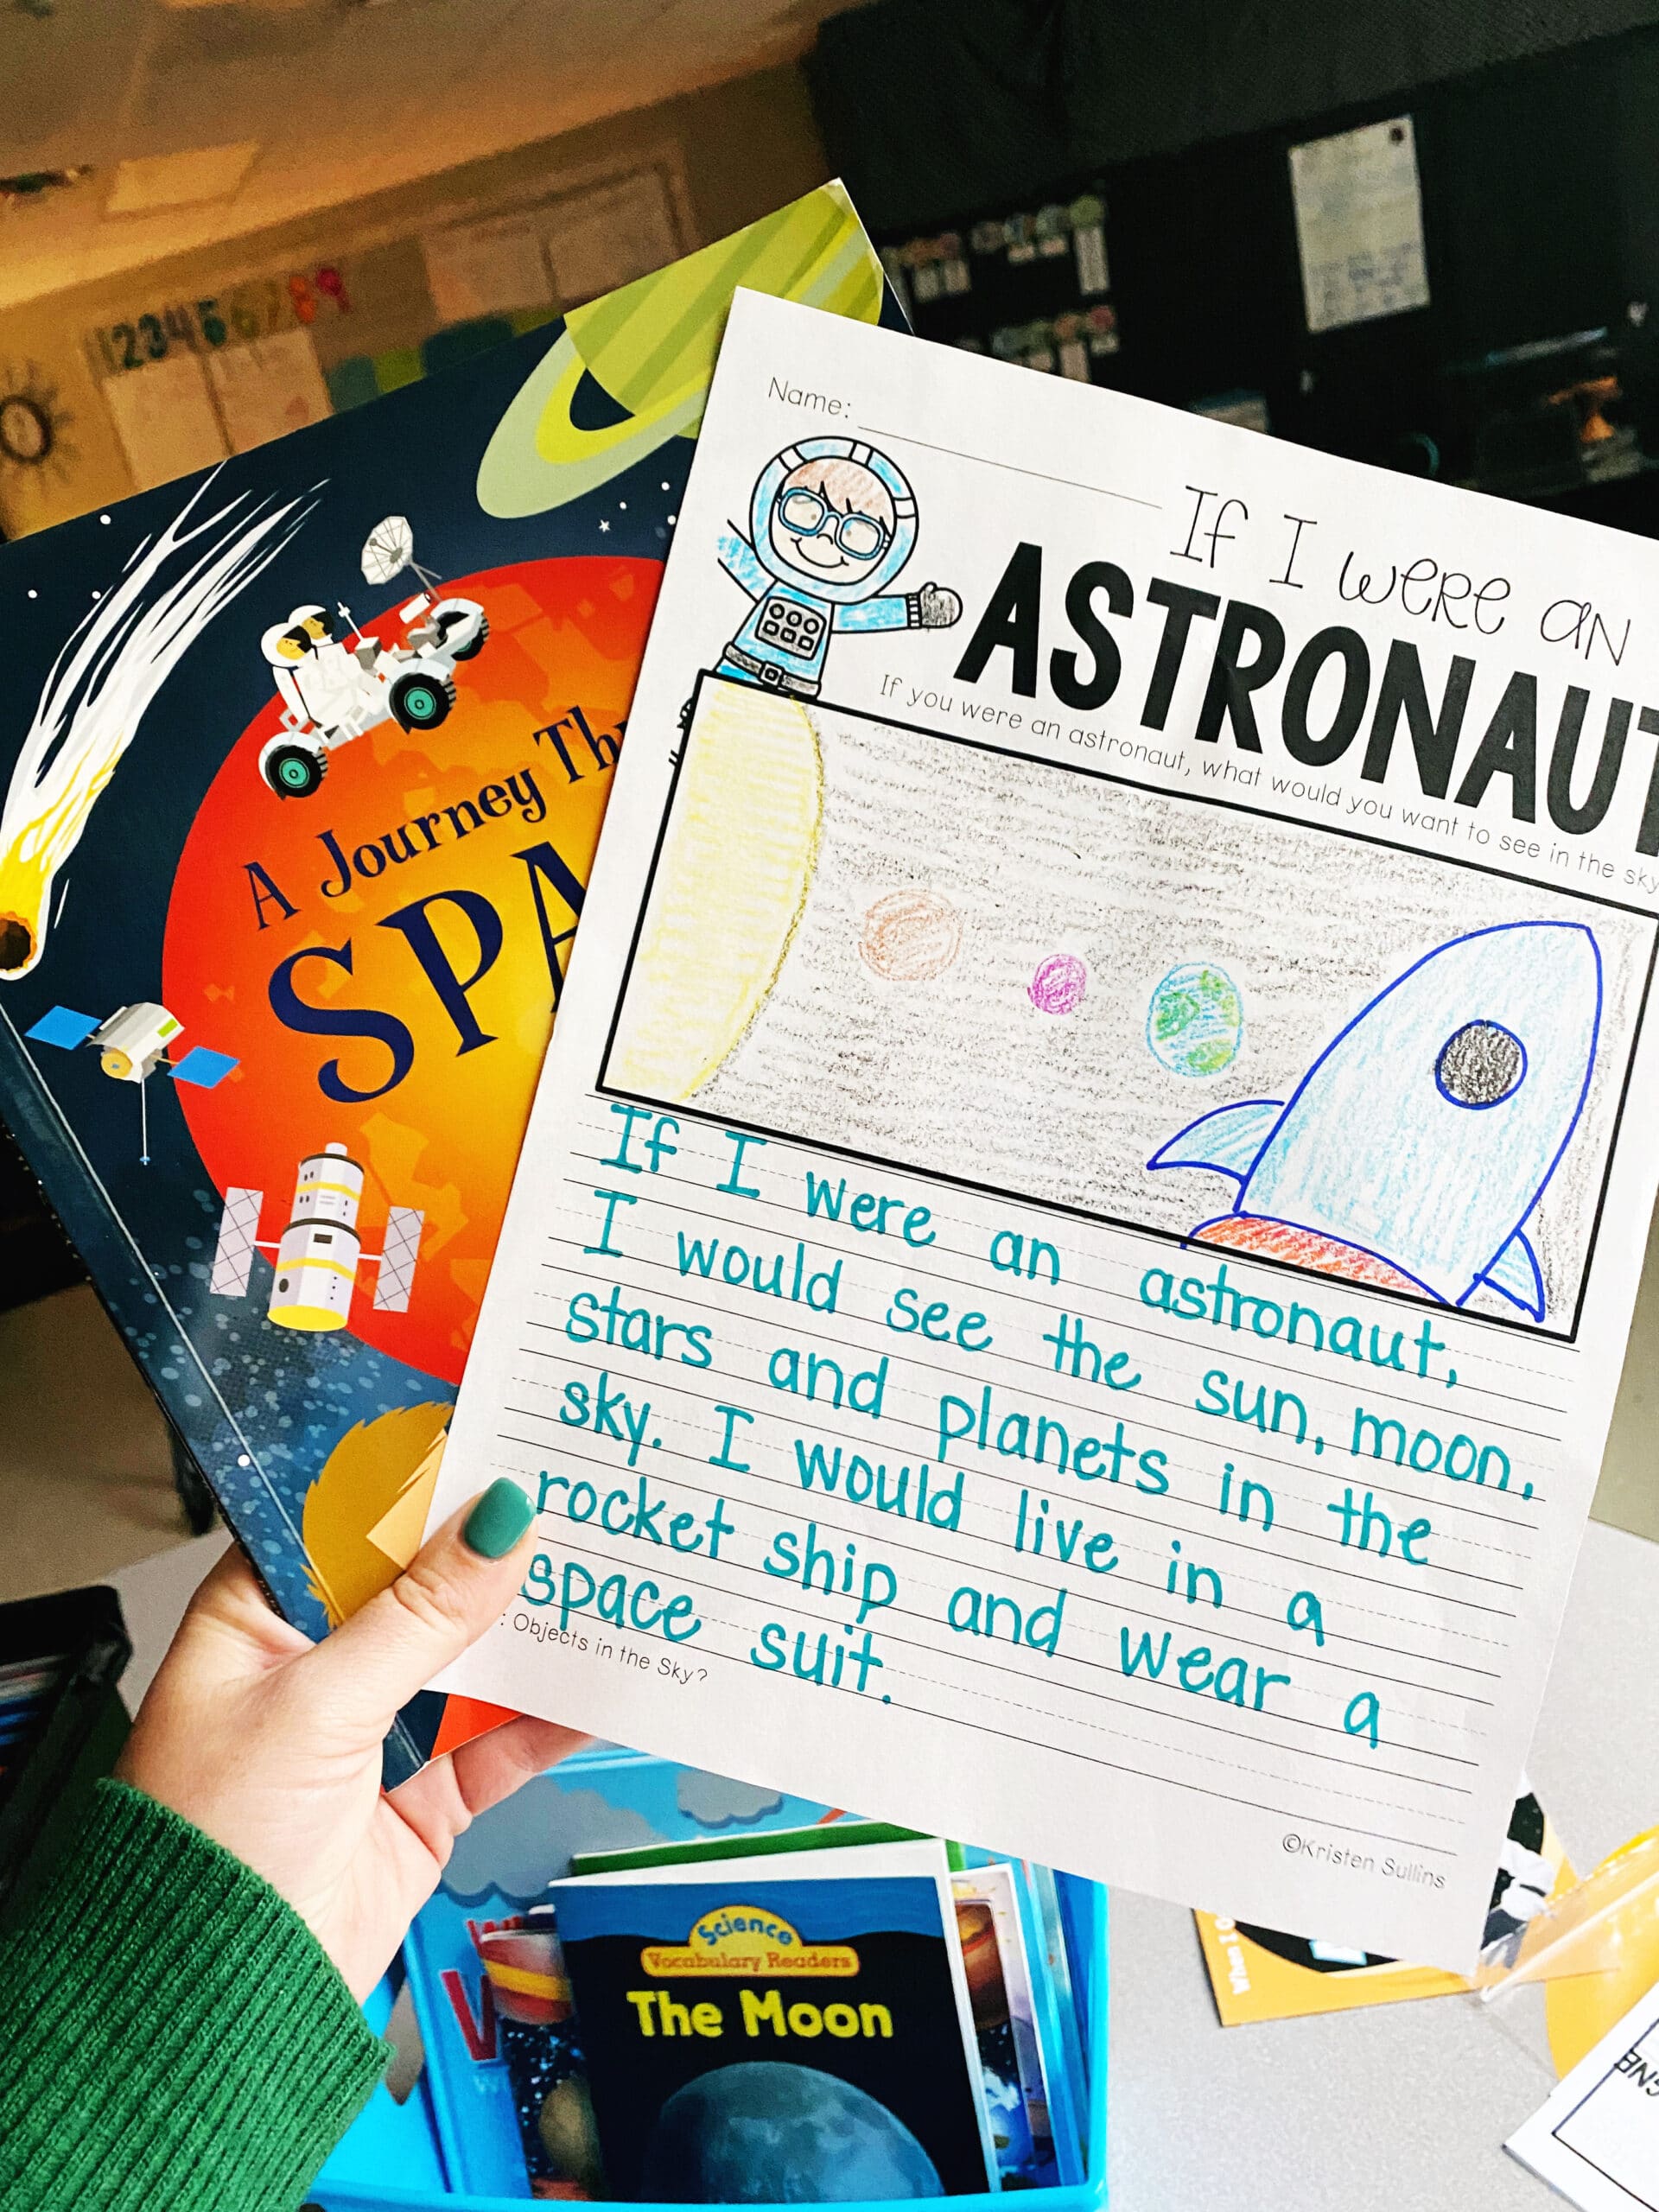 123456789
Name:
If I were an
ASTRONAUT
If you were an astronaut, what would you want to see in the sky
A Journey Thr
SPA
If I were an astronaut,
I would see the sun, moon,
stars and planets in the
sky. I would live in a
rocket ship and wear a
space suit.
: Objects in the Sky?
©Kristen Sullins
Science
Vocabulary Readers
The Moon
W